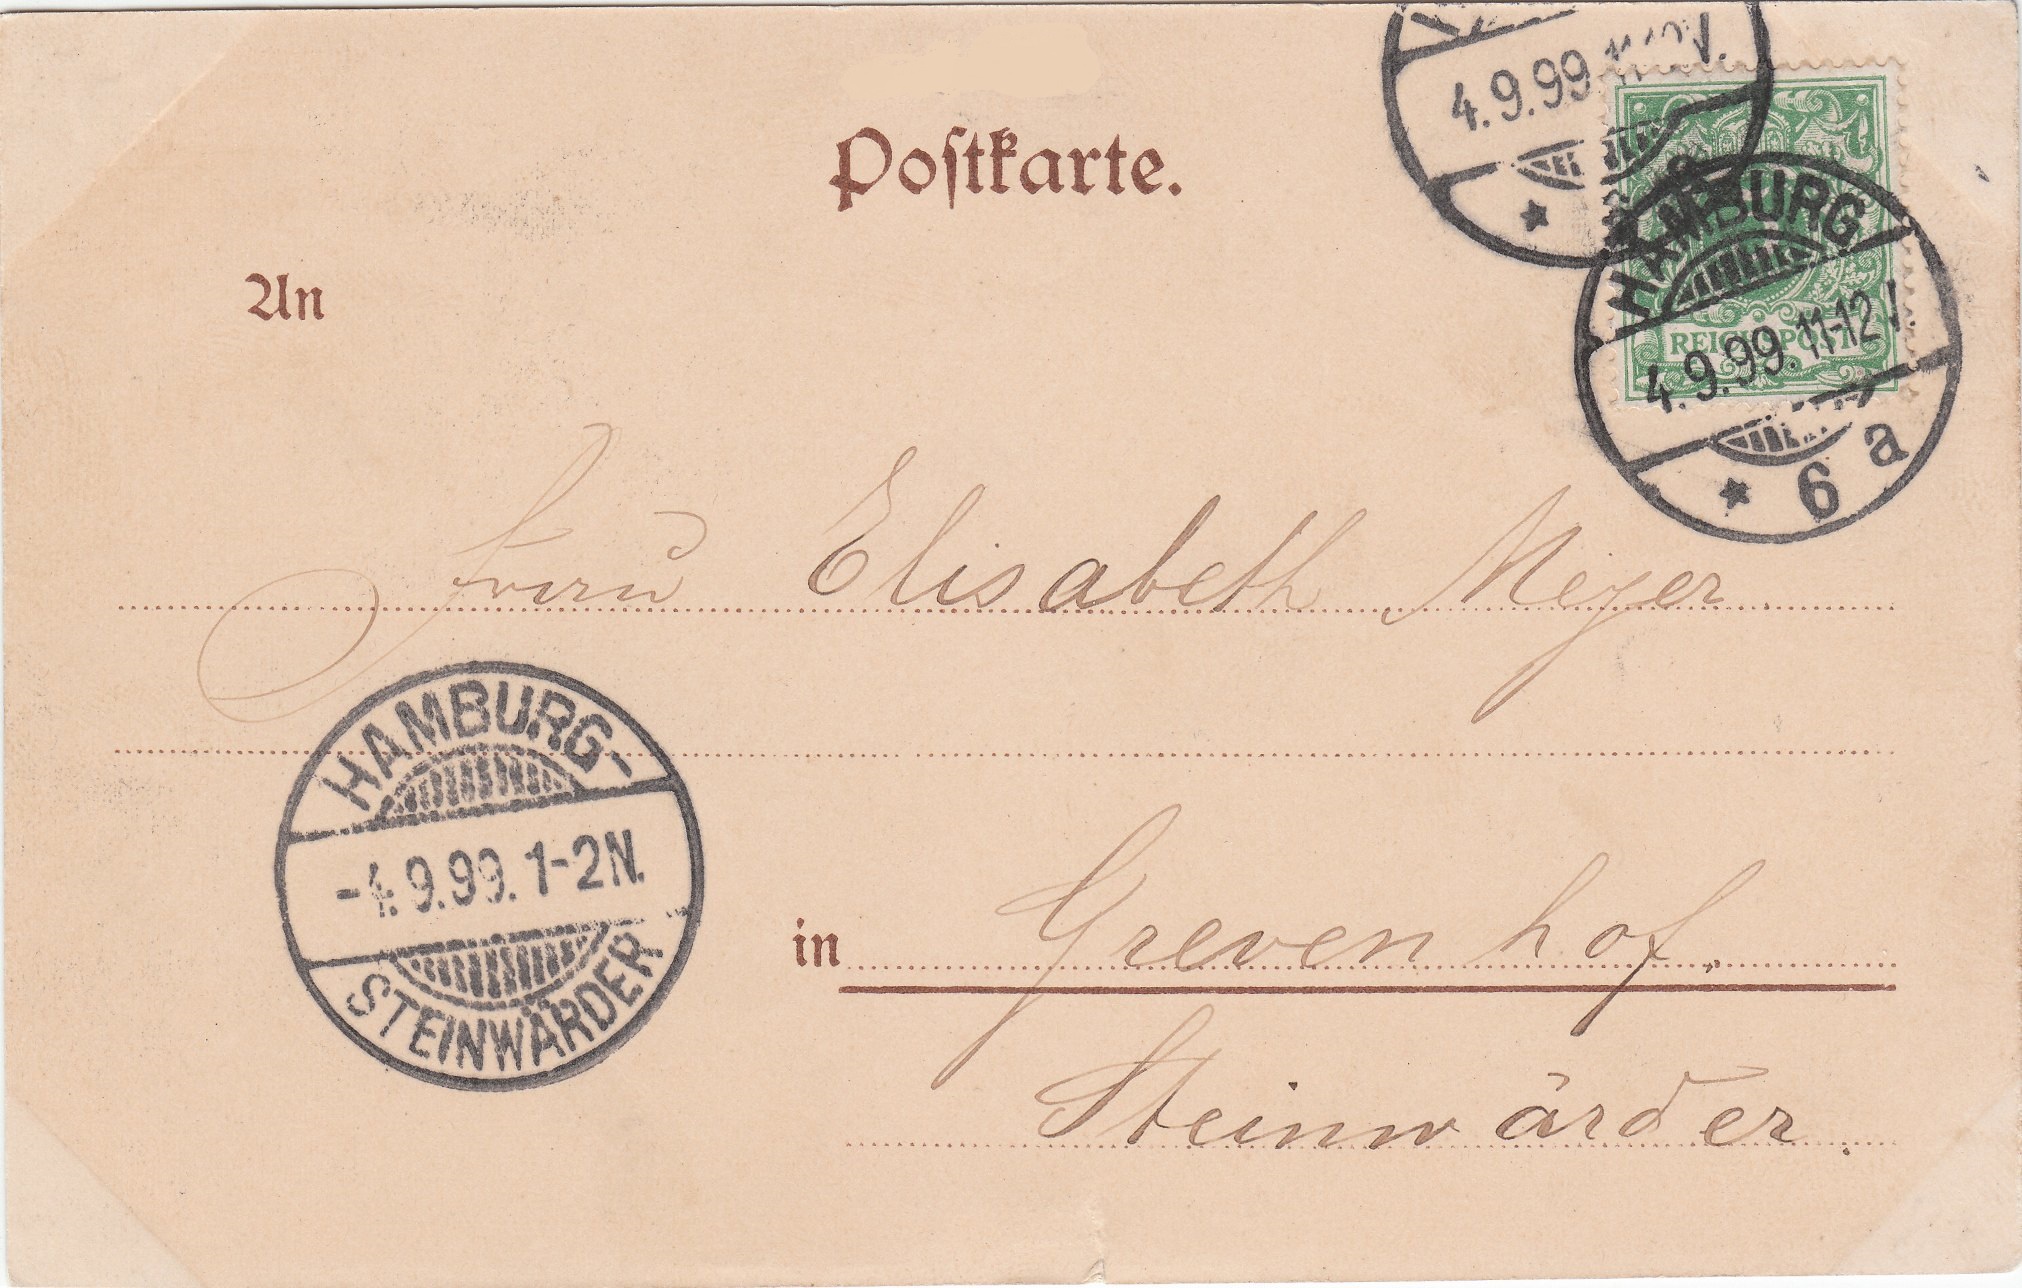 Postkarte.
4.9.99
REICHSPOST
HAMBURG
4.9.99. 11-12 V.
* 6 a
An
Frau Elisabeth Meyer.
HAMBURG-
-4.9.99. 1-2 N.
STEINWÄRDER
in Grevenhof.
Steinwärder.